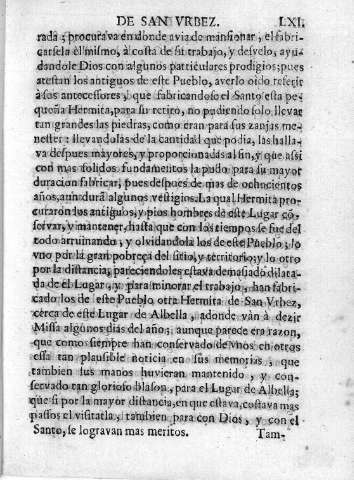 DE SAN VRBEZ. LXI.
rada; procurava en donde avia de mansionar, el fabri-
carsela él mismo, à costa de su trabajo, y desvelo, ayu-
dandole Dios con algunos particulares prodigios; pues
atestan los antiguos de este Pueblo, averlo oido referir
à sus antecessores, que fabricandose el Santo esta pe-
queña Hermita, para su retiro, no pudiendo solo llevar
tan grandes las piedras, como eran para sus zanjas me-
nester: llevandolas de la cantidad que podia, las halla-
va despues mayores, y proporcionadas al fin, y que assi
con mas solidos fundamentos la pudo para su mayor
duracion fabricar, pues despues de mas de ochocientos
años, aun dura algunos vestigios. La qual Hermita pro-
curaron los antiguos, y pios hombres de este Lugar cō-
servar, y mantener, hasta que con los tiempos se fue del
todo arruinando; y olvidandola los de este Pueblo; lo
vno por la gran pobreça del sitio, y territorio; y lo otro
por la distancia, pareciendoles estava demasiado dilata-
da de el Lugar, y para minorar el trabajo, han fabri-
cado los de este Pueblo otra Hermita de San Vrbez,
cerca de este Lugar de Albella, adonde vàn à dezir
Missa algunos dias del año; aunque parece era razon,
que como siempre han conservado de vnos en otros
essa tan plausible noticia en sus memorias, que
tambien sus manos huvieran mantenido, y con-
servado tan glorioso blason, para el Lugar de Albella;
que si por la mayor distancia, en que estava, costava mas
passos el visitarla, tambien para con Dios, y con el
Santo, se logravan mas meritos. Tam-